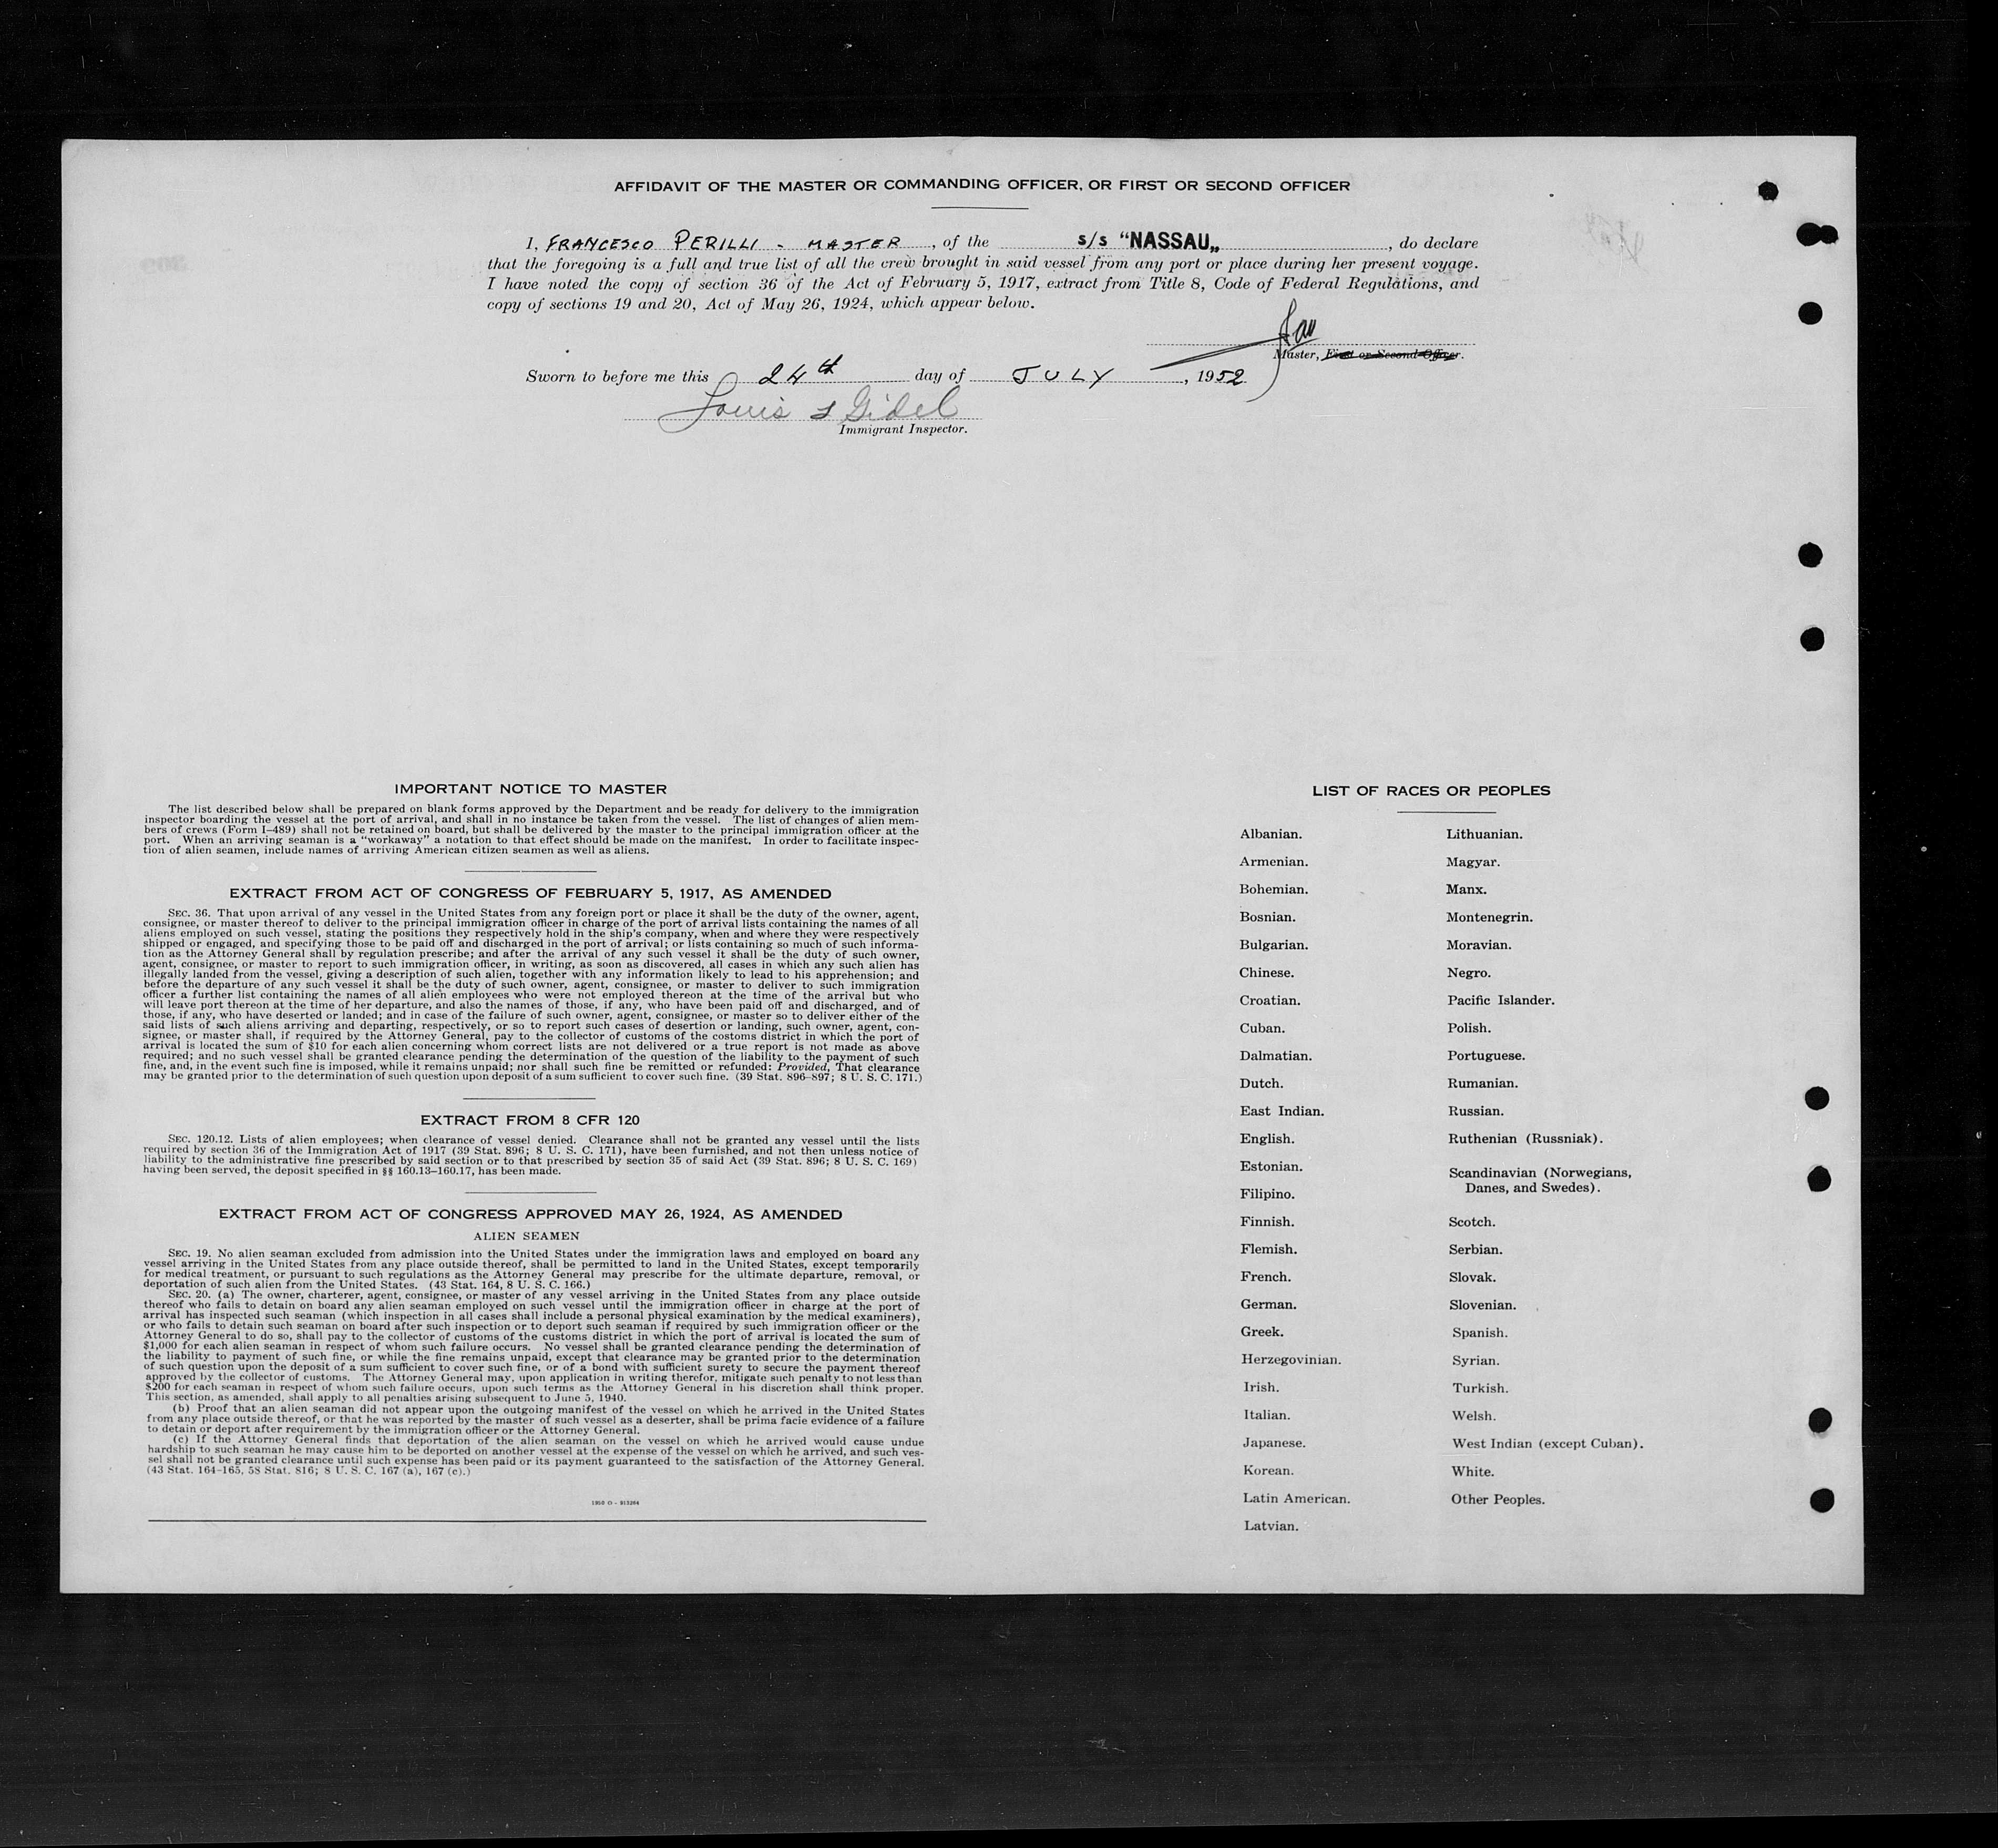 AFFIDAVIT OF THE MASTER OR COMMANDING OFFICER, OR FIRST OR SECOND OFFICER
I, FRANCESCO PERILLI - MASTER, of the s/s "NASSAU„, do declare
that the foregoing is a full and true list of all the crew brought in said vessel from any port or place during her present voyage.
I have noted the copy of section 36 of the Act of February 5, 1917, extract from Title 8, Code of Federal Regulations, and
copy of sections 19 and 20, Act of May 26, 1924, which appear below.
Master, First or Second Officer.
Sworn to before me this 24th day of JULY, 1952
Louis Gidel
Immigrant Inspector.
IMPORTANT NOTICE TO MASTER
The list described below shall be prepared on blank forms approved by the Department and be ready for delivery to the immigration
inspector boarding the vessel at the port of arrival, and shall in no instance be taken from the vessel. The list of changes of alien mem-
bers of crews (Form I-489) shall not be retained on board, but shall be delivered by the master to the principal immigration officer at the
port. When an arriving seaman is a "workaway" a notation to that effect should be made on the manifest. In order to facilitate inspec-
tion of alien seamen, include names of arriving American citizen seamen as well as aliens.
EXTRACT FROM ACT OF CONGRESS OF FEBRUARY 5, 1917, AS AMENDED
SEC. 36. That upon arrival of any vessel in the United States from any foreign port or place it shall be the duty of the owner, agent,
consignee, or master thereof to deliver to the principal immigration officer in charge of the port of arrival lists containing the names of all
aliens employed on such vessel, stating the positions they respectively hold in the ship's company, when and where they were respectively
shipped or engaged, and specifying those to be paid off and discharged in the port of arrival; or lists containing so much of such informa-
tion as the Attorney General shall by regulation prescribe; and after the arrival of any such vessel it shall be the duty of such owner,
agent, consignee, or master to report to such immigration officer, in writing, as soon as discovered, all cases in which any such alien has
illegally landed from the vessel, giving a description of such alien, together with any information likely to lead to his apprehension; and
before the departure of any such vessel it shall be the duty of such owner, agent, consignee, or master to deliver to such immigration
officer a further list containing the names of all alien employees who were not employed thereon at the time of the arrival but who
will leave port thereon at the time of her departure, and also the names of those, if any, who have been paid off and discharged, and of
those, if any, who have deserted or landed; and in case of the failure of such owner, agent, consignee, or master so to deliver either of the
said lists of such aliens arriving and departing, respectively, or so to report such cases of desertion or landing, such owner, agent, con-
signee, or master shall, if required by the Attorney General, pay to the collector of customs of the costoms district in which the port of
arrival is located the sum of $10 for each alien concerning whom correct lists are not delivered or a true report is not made as above
required; and no such vessel shall be granted clearance pending the determination of the question of the liability to the payment of such
fine, and, in the event such fine is imposed, while it remains unpaid; nor shall such fine be remitted or refunded: Provided, That clearance
may be granted prior to the determination of such question upon deposit of a sum sufficient to cover such fine. (39 Stat. 896-897; 8 U. S. C. 171.)
EXTRACT FROM 8 CFR 120
SEC. 120.12. Lists of alien employees; when clearance of vessel denied. Clearance shall not be granted any vessel until the lists
required by section 36 of the Immigration Act of 1917 (39 Stat. 896; 8 U. S. C. 171), have been furnished, and not then unless notice of
liability to the administrative fine prescribed by said section or to that prescribed by section 35 of said Act (39 Stat. 896; 8 U. S. C. 169)
having been served, the deposit specified in §§ 160.13-160.17, has been made.
EXTRACT FROM ACT OF CONGRESS APPROVED MAY 26, 1924, AS AMENDED
ALIEN SEAMEN
SEC. 19. No alien seaman excluded from admission into the United States under the immigration laws and employed on board any
vessel arriving in the United States from any place outside thereof, shall be permitted to land in the United States, except temporarily
for medical treatment, or pursuant to such regulations as the Attorney General may prescribe for the ultimate departure, removal, or
deportation of such alien from the United States. (43 Stat. 164, 8 U. S. C. 166.)
SEC. 20. (a) The owner, charterer, agent, consignee, or master of any vessel arriving in the United States from any place outside
thereof who fails to detain on board any alien seaman employed on such vessel until the immigration officer in charge at the port of
arrival has inspected such seaman (which inspection in all cases shall include a personal physical examination by the medical examiners),
or who fails to detain such seaman on board after such inspection or to deport such seaman if required by such immigration officer or the
Attorney General to do so, shall pay to the collector of customs of the customs district in which the port of arrival is located the sum of
$1,000 for each alien seaman in respect of whom such failure occurs. No vessel shall be granted clearance pending the determination of
the liability to payment of such fine, or while the fine remains unpaid, except that clearance may be granted prior to the determination
of such question upon the deposit of a sum sufficient to cover such fine, or of a bond with sufficient surety to secure the payment thereof
approved by the collector of customs. The Attorney General may, upon application in writing therefor, mitigate such penalty to not less than
$200 for each seaman in respect of whom such failure occurs, upon such terms as the Attorney General in his discretion shall think proper.
This section, as amended, shall apply to all penalties arising subsequent to June 5, 1940.
(b) Proof that an alien seaman did not appear upon the outgoing manifest of the vessel on which he arrived in the United States
from any place outside thereof, or that he was reported by the master of such vessel as a deserter, shall be prima facie evidence of a failure
to detain or deport after requirement by the immigration officer or the Attorney General.
(c) If the Attorney General finds that deportation of the alien seaman on the vessel on which he arrived would cause undue
hardship to such seaman he may cause him to be deported on another vessel at the expense of the vessel on which he arrived, and such ves-
sel shall not be granted clearance until such expense has been paid or its payment guaranteed to the satisfaction of the Attorney General.
(43 Stat. 164-165, 58 Stat. 816; 8 U. S. C. 167 (a), 167 (c).)
LIST OF RACES OR PEOPLES
Albanian.
Armenian.
Bohemian.
Bosnian.
Bulgarian.
Chinese.
Croatian.
Cuban.
Dalmatian.
Dutch.
East Indian.
English.
Estonian.
Filipino.
Finnish.
Flemish.
French.
German.
Greek.
Herzegovinian.
Irish.
Italian.
Japanese.
Korean.
Latin American.
Latvian.
Lithuanian.
Magyar.
Manx.
Montenegrin.
Moravian.
Negro.
Pacific Islander.
Polish.
Portuguese.
Rumanian.
Russian.
Ruthenian (Russniak).
Scandinavian (Norwegians,
Danes, and Swedes).
Scotch.
Serbian.
Slovak.
Slovenian.
Spanish.
Syrian.
Turkish.
Welsh.
West Indian (except Cuban).
White.
Other Peoples.